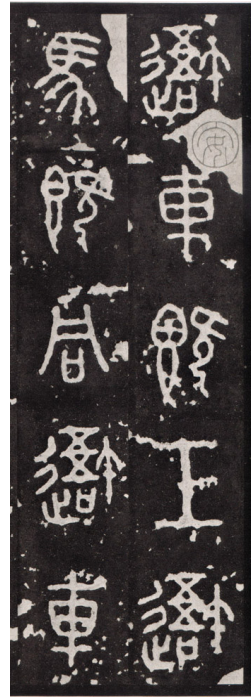 吾車既工吾
馬既同吾車